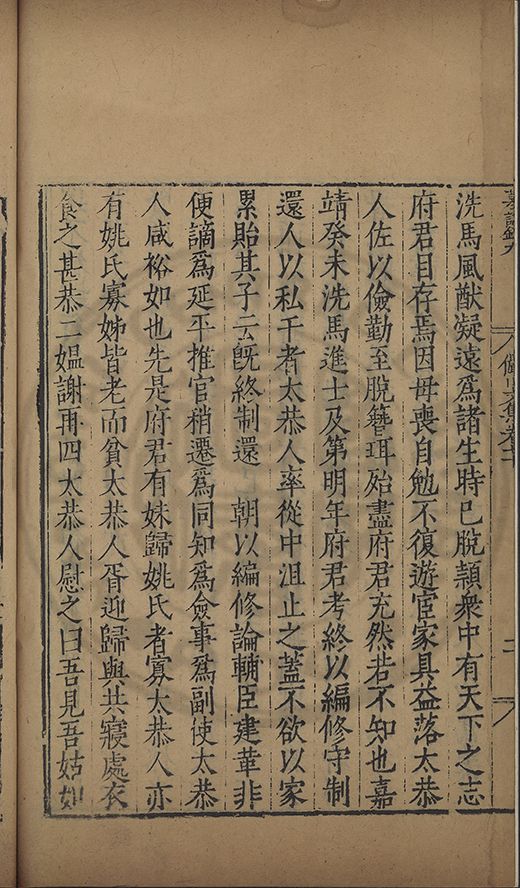 洗馬風猷凝遠爲諸生時已脫頴衆中有天下之志
府君目存焉因毋喪自勉不復遊宦家具益落太恭
人佐以儉勤至脫簪珥殆盡府君充然若不知也嘉
靖癸未洗馬進士及第明年府君考終以編修守制
還人以私干者太恭人率從中沮止之葢不欲以家
累貽其子云旣終制還　朝以編修論輔臣建革非
便謫爲延平推官稍遷爲同知爲僉事爲副使太恭
人咸裕如也先是府君有妹歸姚氏者寡太恭人亦
有姚氏寡姊皆老而貧太恭人胥迎歸與共寢處衣
食之甚恭二媼謝再四太恭人慰之曰吾見吾姑如